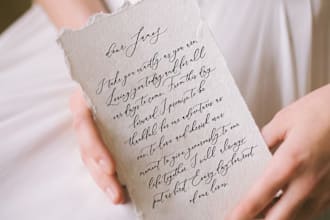 dear James
I take you wildly as you are
Loving you today and for all
our days to come. From this day
forward I promise to be
thankful for our adventures as
one. to love and cherish each
moment to give generously to our
life together. I will always
put us first. Every day for rest
of our lives.